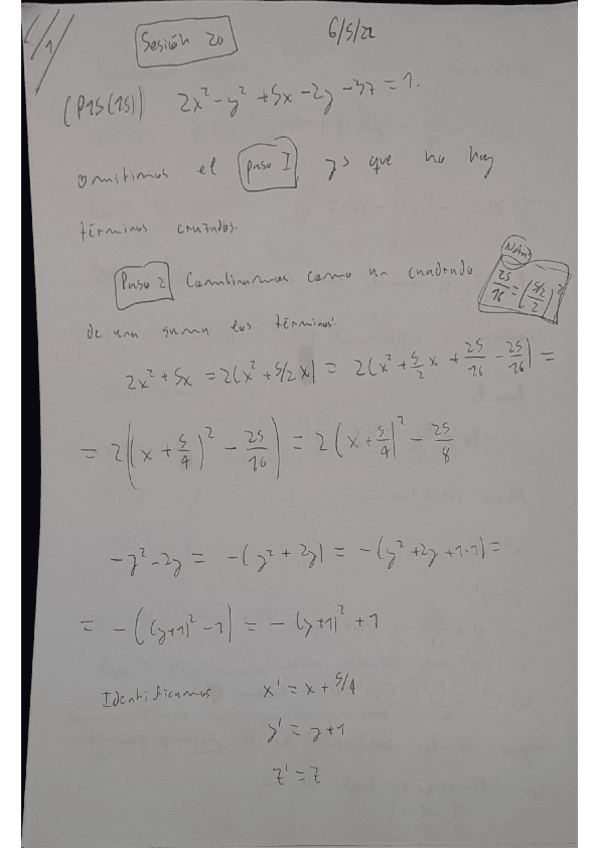 1/1
Sesión 20
6/5/22
(P15(15)) 2x² - y² + 5x - 2y - 3z = 1.
omitimos el paso I ya que no hay
términos cruzados.
Nota:
25/16 = ((5/2)/2)²
Paso 2 Combinamos como un cuadrado
de una suma los términos:
2x² + 5x = 2(x² + 5/2 x) = 2(x² + 5/2 x + 25/16 - 25/16) =
= 2((x + 5/4)² - 25/16) = 2(x + 5/4)² - 25/8
-y² - 2y = -(y² + 2y) = -(y² + 2y + 1 - 1) =
= -((y+1)² - 1) = -(y+1)² + 1
Identificamos x' = x + 5/4
y' = y + 1
z' = z